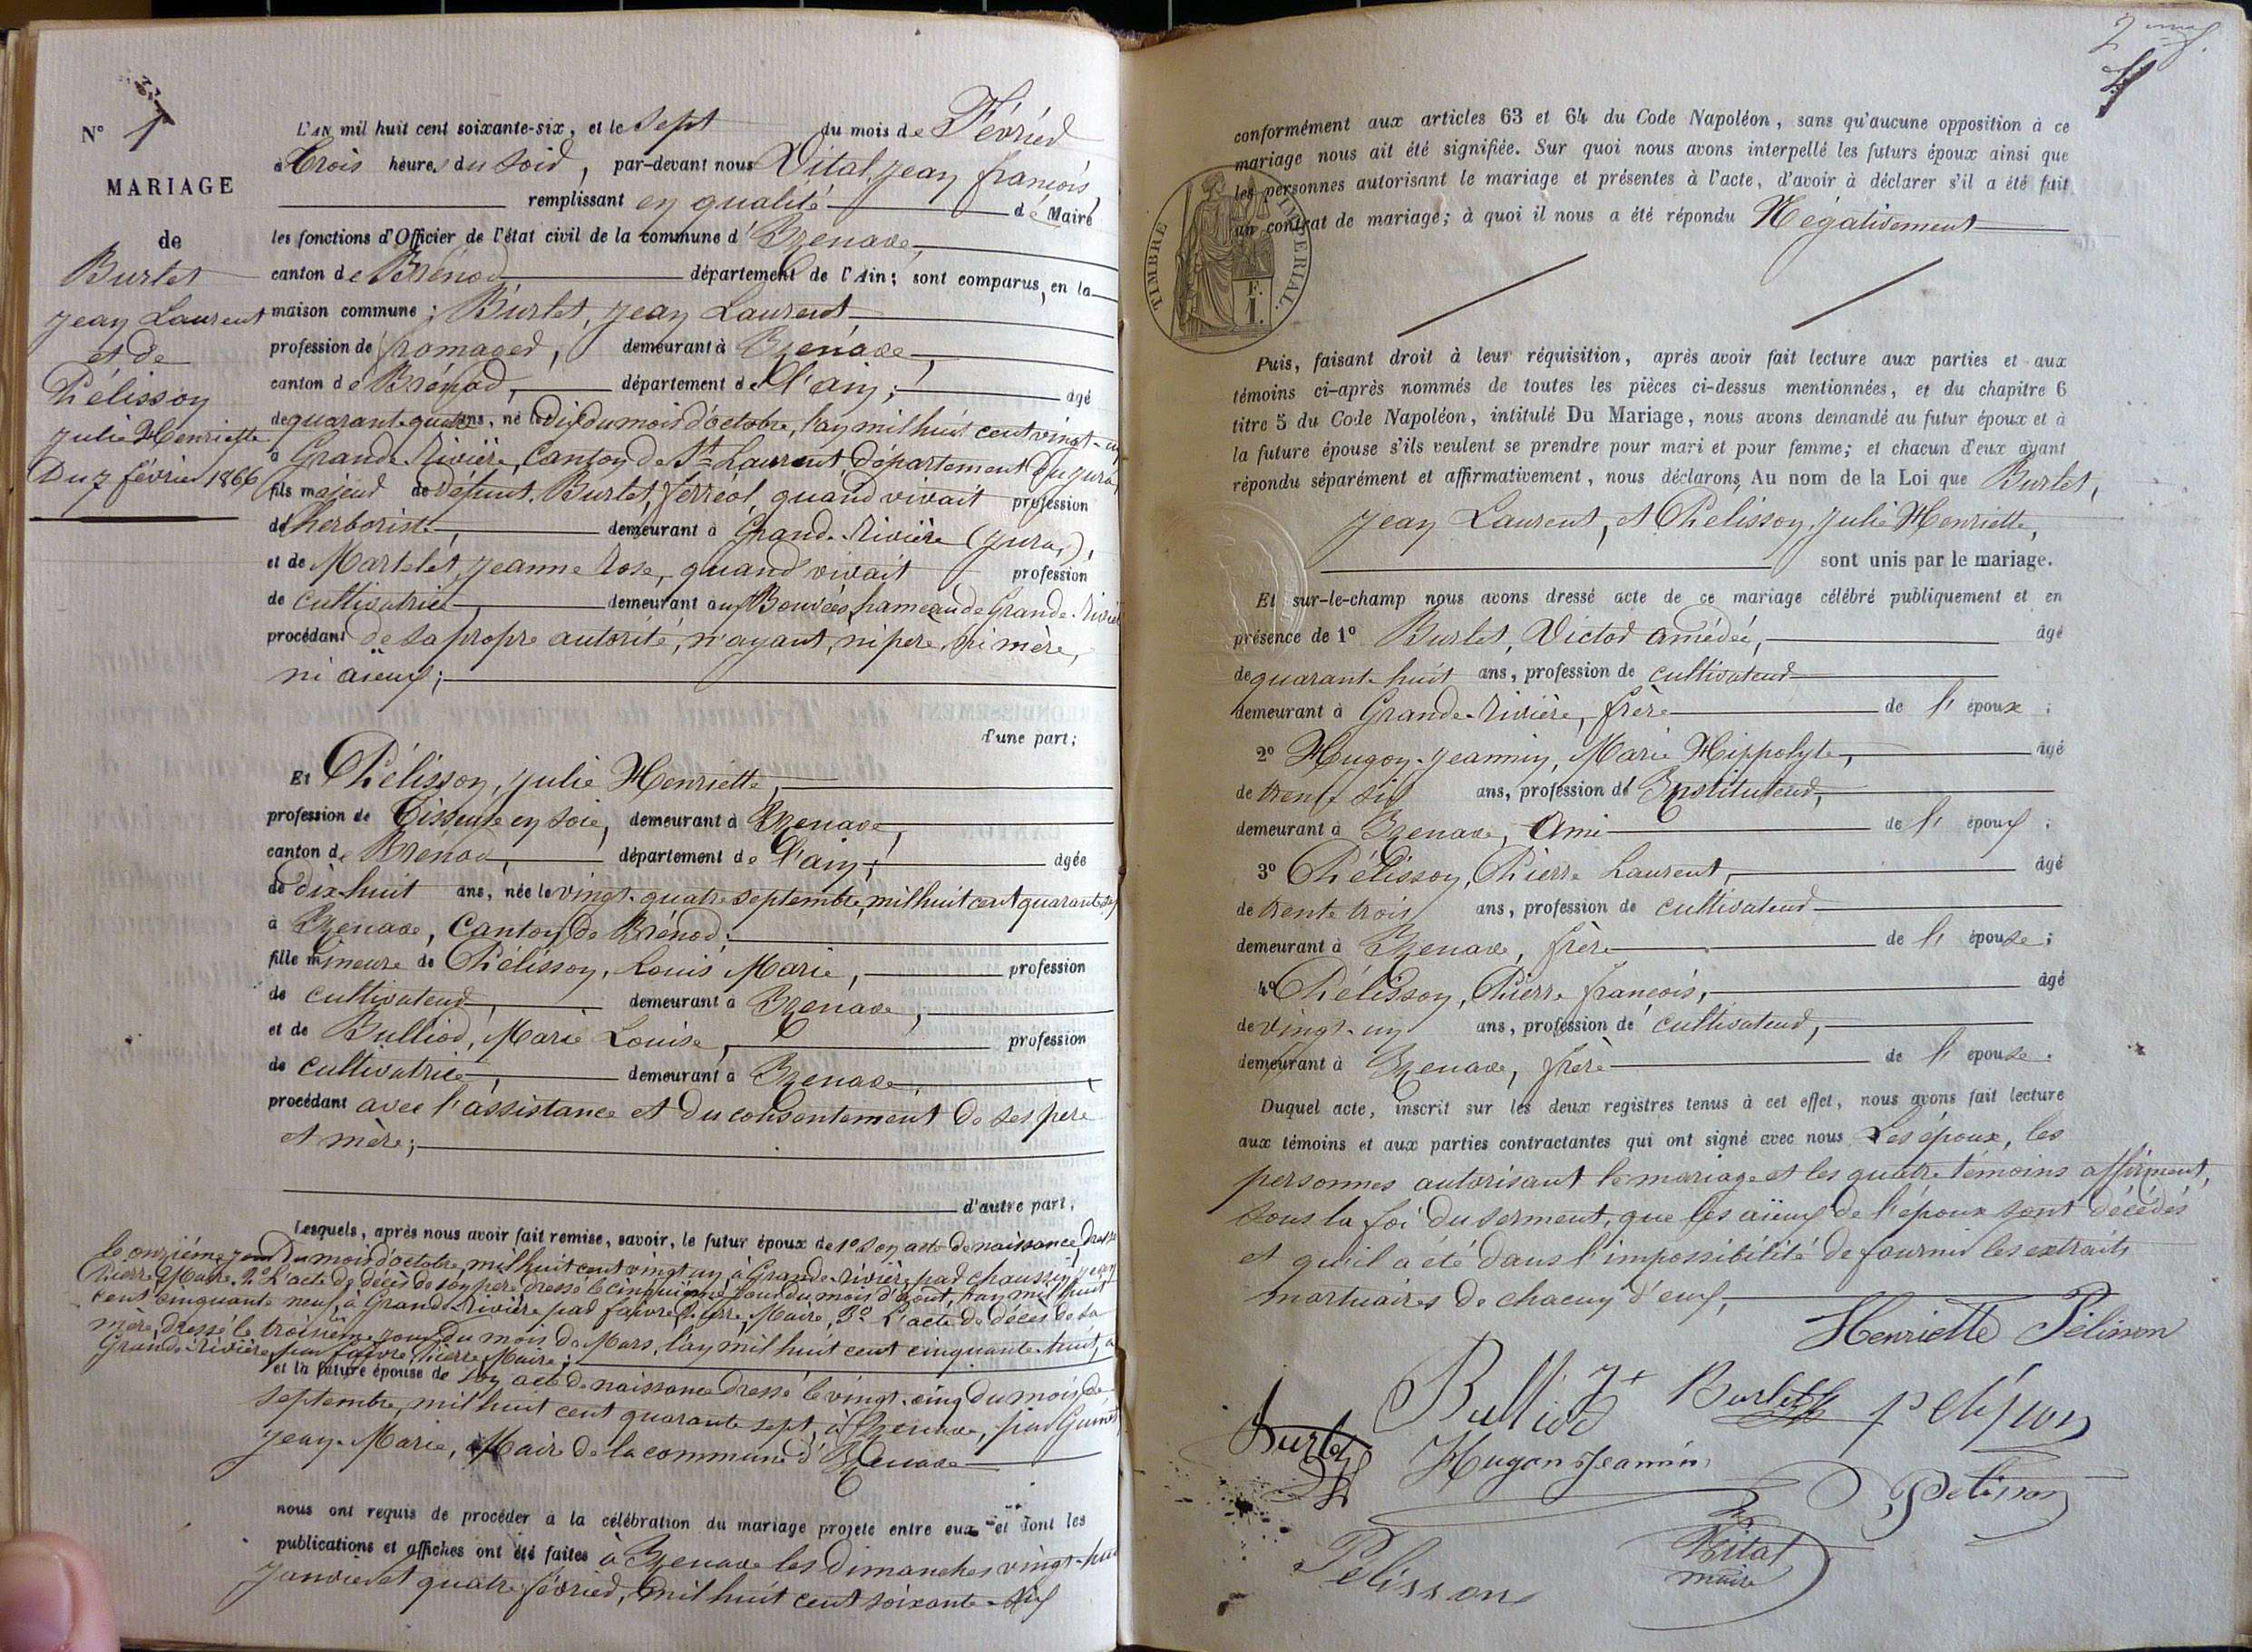 N° 1
MARIAGE
de
Burlet
Jean Laurent
et de
Pélisson
Julie Henriette
Du 7 février 1866
L'AN mil huit cent soixante-six, et le Sept du mois de Février
à Trois heures du Soir, par-devant nous Vital, Jean François
remplissant en qualité de Maire
les fonctions d'Officier de l'état civil de la commune d'Izenave
canton de Brénod département de l'Ain; sont comparus, en la
maison commune: Burlet, Jean Laurent
profession de fromager, demeurant à Izenave,
canton de Brénod, département de l'ain; âgé
de quarante quatre ans, né le Dix du mois d'octobre, l'an mil huit cent vingt-un
à Grande-Rivière, Canton de St Laurent, département du Jura,
fils majeur de défunt Burlet, ferréol, quand vivait profession
d'herboriste, demeurant à Grande-Rivière (Jura),
et de Martelet, Jeanne Rose, quand vivait profession
de cultivatrice, demeurant aux Bouvées, hameau de Grande-Rivière
procédant de sa propre autorité, n'ayant, ni père, ni mère,
ni aïeux;
d'une part;
Et Pélisson, Julie Henriette,
profession de Tisseuse en Soie, demeurant à Izenave,
canton de Brénod, département de l'ain; âgée
de dix-huit ans, née le vingt-quatre septembre, mil huit cent quarante sept
à Izenave, Canton de Brénod;
fille mineure de Pélisson, Louis Marie, profession
de cultivateur, demeurant à Izenave,
et de Bulliod, Marie Louise, profession
de cultivatrice, demeurant à Izenave,
procédant avec l'assistance et du consentement de ses père
et mère;
d'autre part;
Lesquels, après nous avoir fait remise, savoir, le futur époux de 1° son acte de naissance, dressé
le onzième jour du mois d'octobre, mil huit cent vingt un, à Grande-Rivière, par Chaussin, Jean
Pierre Maire. 2° L'acte de décès de son père dressé le cinquième jour du mois d'août, l'an mil huit
cent cinquante neuf, à Grande-Rivière par faivre Pierre, Maire, 3° L'acte de décès de sa
mère, dressé le troisième jour du mois de Mars, l'an mil huit cent cinquante-huit, à
Grande-Rivière, par faivre, Pierre, Maire;
et la future épouse de son acte de naissance dressé le vingt-cinq du mois de
septembre, mil huit cent quarante sept, à Izenave, par
Jean-Marie, Maire de la commune d'Izenave
nous ont requis de procéder à la célébration du mariage projeté entre eux et dont les
publications et affiches ont été faites à Izenave les Dimanches vingt-huit
Janvier et quatre février, mil huit cent soixante-six
conformément aux articles 63 et 64 du Code Napoléon, sans qu'aucune opposition à ce
mariage nous ait été signifiée. Sur quoi nous avons interpellé les futurs époux ainsi que
les personnes autorisant le mariage et présentes à l'acte, d'avoir à déclarer s'il a été fait
un contrat de mariage; à quoi il nous a été répondu Négativement
TIMBRE IMPÉRIAL.
F.
1.
Puis, faisant droit à leur réquisition, après avoir fait lecture aux parties et aux
témoins ci-après nommés de toutes les pièces ci-dessus mentionnées, et du chapitre 6
titre 5 du Code Napoléon, intitulé Du Mariage, nous avons demandé au futur époux et à
la future épouse s'ils veulent se prendre pour mari et pour femme; et chacun d'eux ayant
répondu séparément et affirmativement, nous déclarons Au nom de la Loi que Burlet,
Jean Laurent, et Pélisson, Julie Henriette,
sont unis par le mariage.
Et sur-le-champ nous avons dressé acte de ce mariage célébré publiquement et en
présence de 1° Burlet, Victor Amédée, âgé
de quarante-huit ans, profession de cultivateur
demeurant à Grande-Rivière, frère de l'époux;
2° Hugon-Jeannin, Marie Hippolyte, âgé
de trente six ans, profession d'Instituteur,
demeurant à Izenave, Ami de l'époux;
3° Pélisson, Pierre Laurent, âgé
de trente trois ans, profession de cultivateur
demeurant à Izenave, frère de l'épouse;
4° Pélisson, Pierre françois, âgé
de vingt-un ans, profession de cultivateur,
demeurant à Izenave, frère de l'épouse.
Duquel acte, inscrit sur les deux registres tenus à cet effet, nous avons fait lecture
aux témoins et aux parties contractantes qui ont signé avec nous Les époux, les
personnes autorisant le mariage et les quatre témoins affirment,
sous la foi du serment, que les aïeux de l'époux sont décédés
et qu'il a été dans l'impossibilité de fournir les extraits
mortuaires de chacun d'eux,
Henriette Pélisson
Bulliod Burlet pelisson
Burlet Hugon Jeannin
Pelisson
Pélisson
Vital
maire